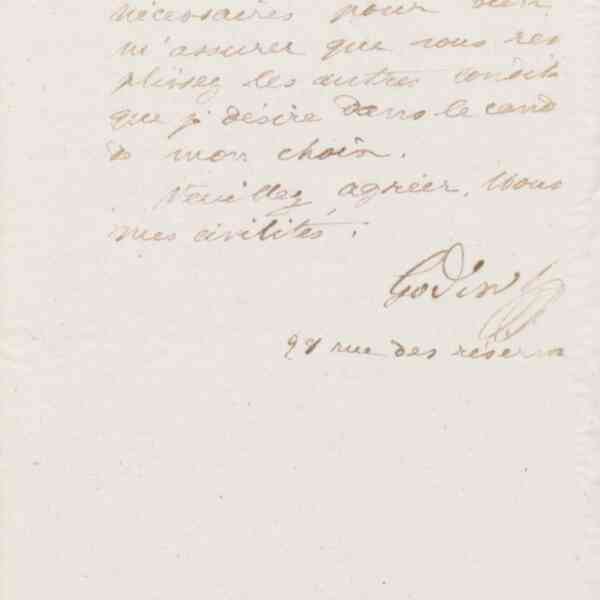 nécessaires pour bien
m'assurer que vous rem
plissez les autres condit
que je désire dans le cand
de mon choix.
Veuillez agréer, Mons
mes civilités.
Godin
98 rue des réserv